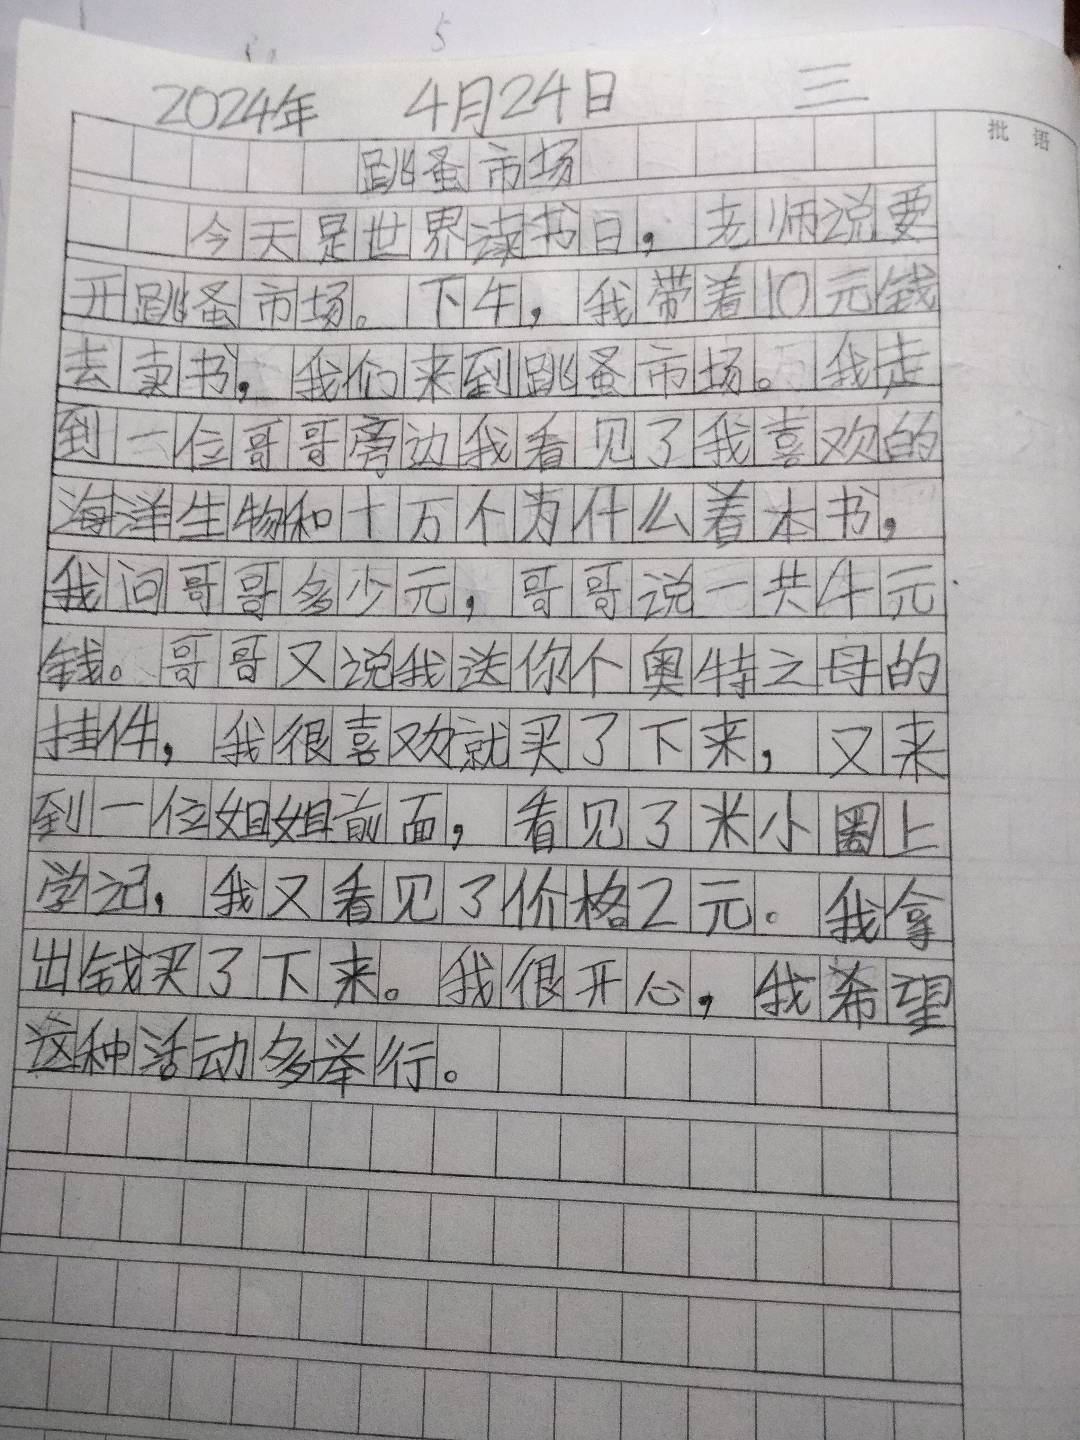 5
2024年 4月24日 三
批语
跳蚤市场
今天是世界读书日，老师说要
开跳蚤市场。下午，我带着10元钱
去卖书，我们来到跳蚤市场。我走
到一位哥哥旁边我看见了我喜欢的
海洋生物和十万个为什么着本书，
我问哥哥多少元，哥哥说一共4元
钱。哥哥又说我送你个奥特之母的
挂件，我很喜欢就买了下来，又来
到一位姐姐前面，看见了米小圈上
学记，我又看见了价格2元。我拿
出钱买了下来。我很开心，我希望
这种活动多举行。